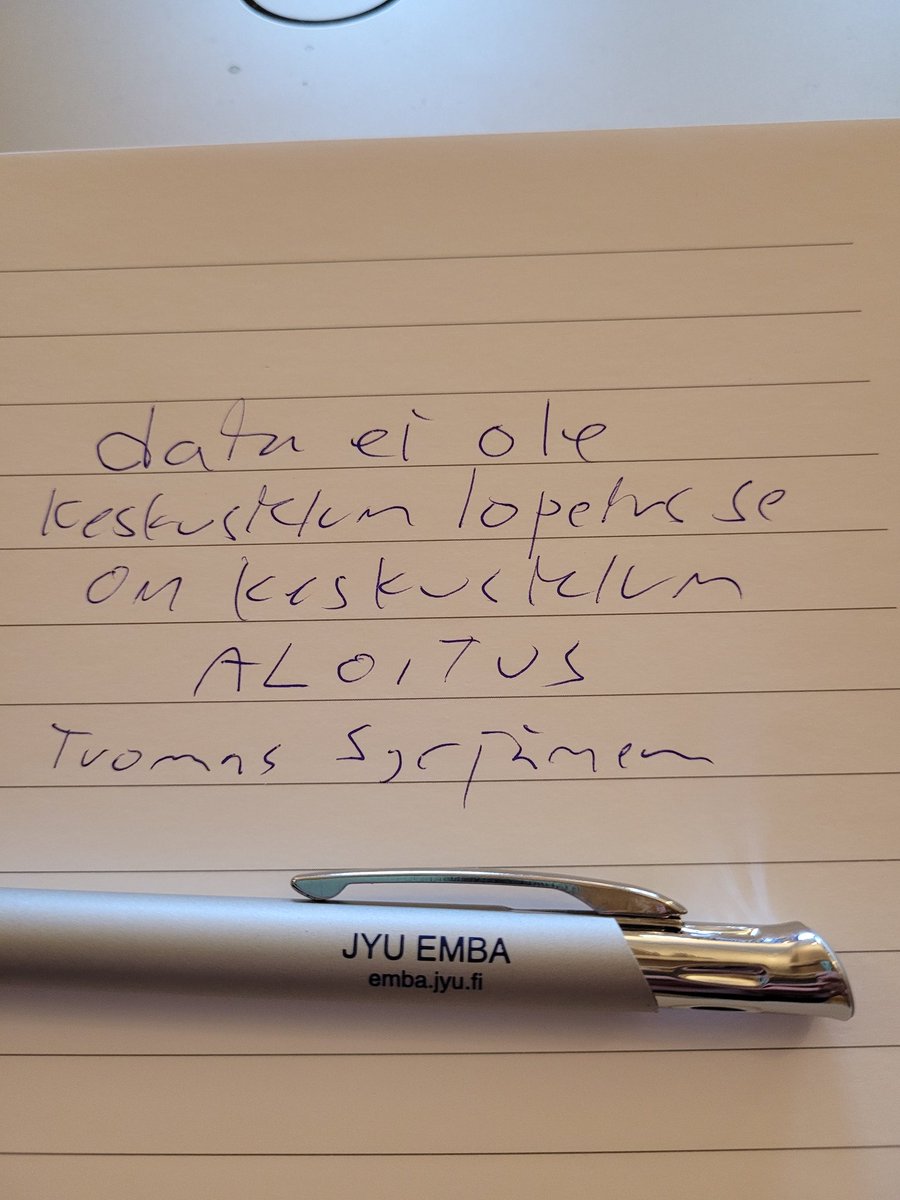 data ei ole
keskustelun lopetus se
on keskustelun
ALOITUS
Tuomas Syrjänen
JYU EMBA
emba.jyu.fi